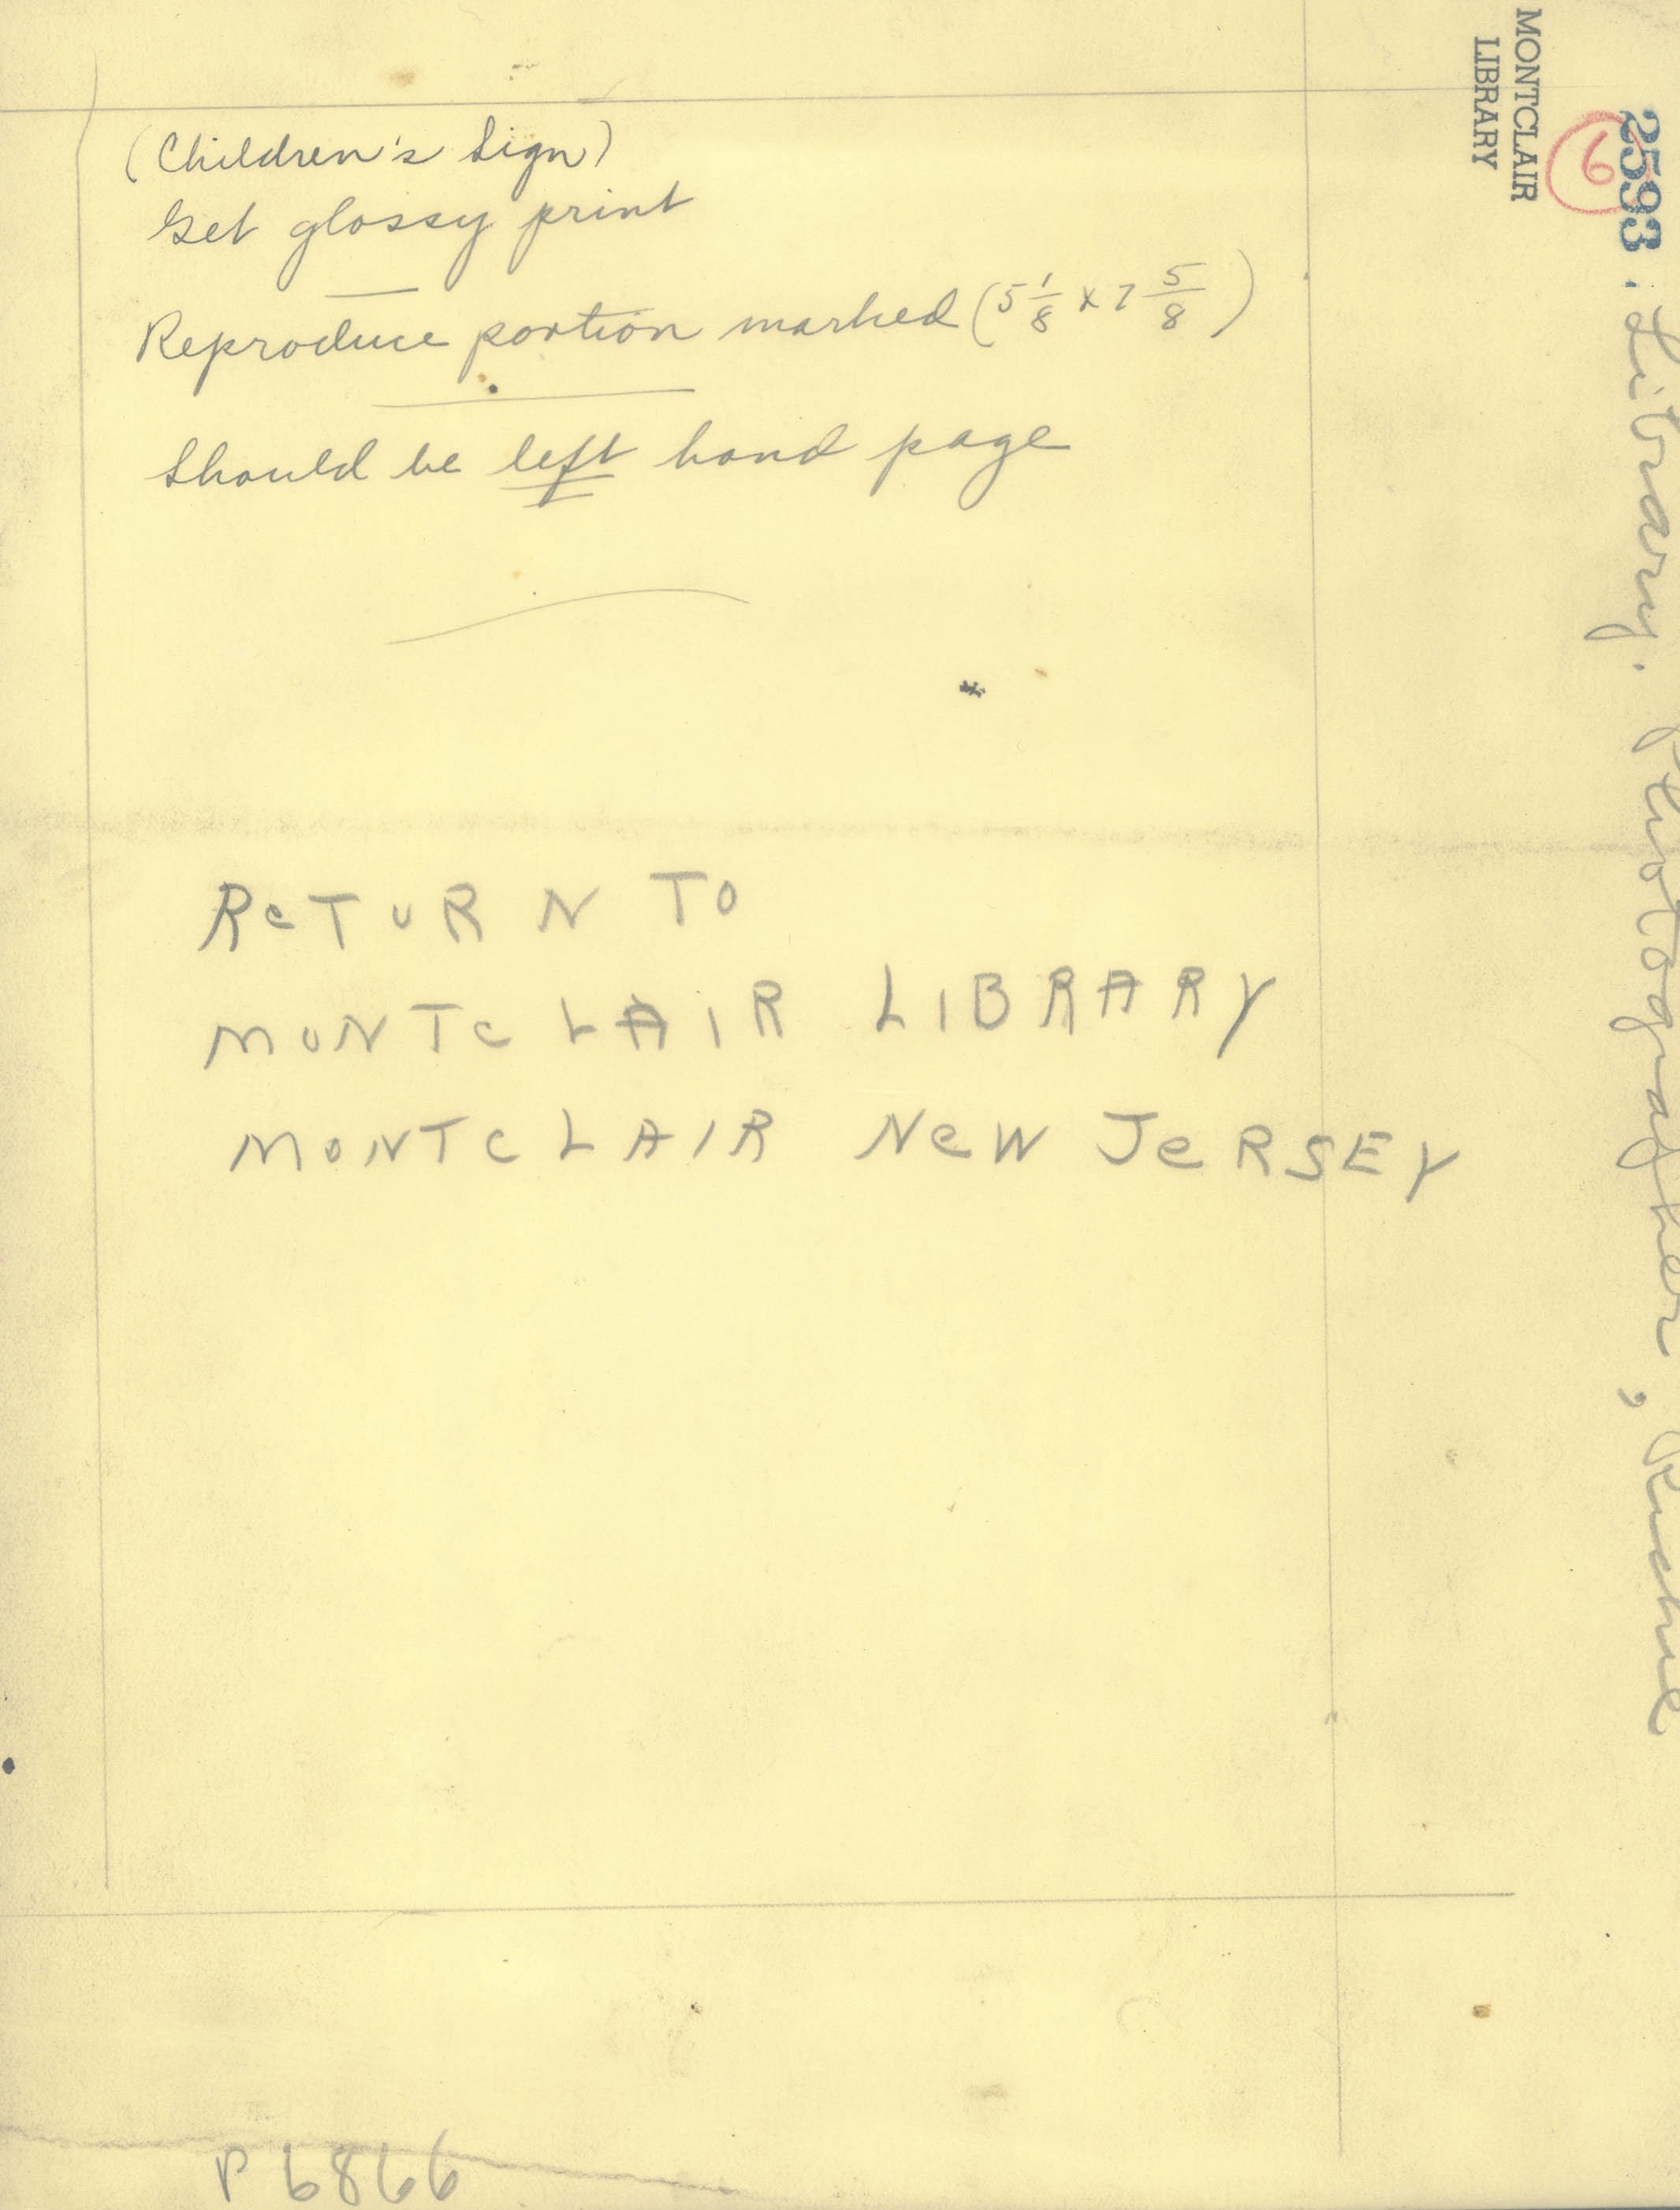 (Children's Sign)
Get glossy print
Reproduce portion marked (5 1/8 x 7 5/8)
Should be left hand page
RETURN TO
MONTCLAIR LIBRARY
MONTCLAIR NEW JERSEY
P6866
MONTCLAIR
LIBRARY
6
2593. Library. Photographer,